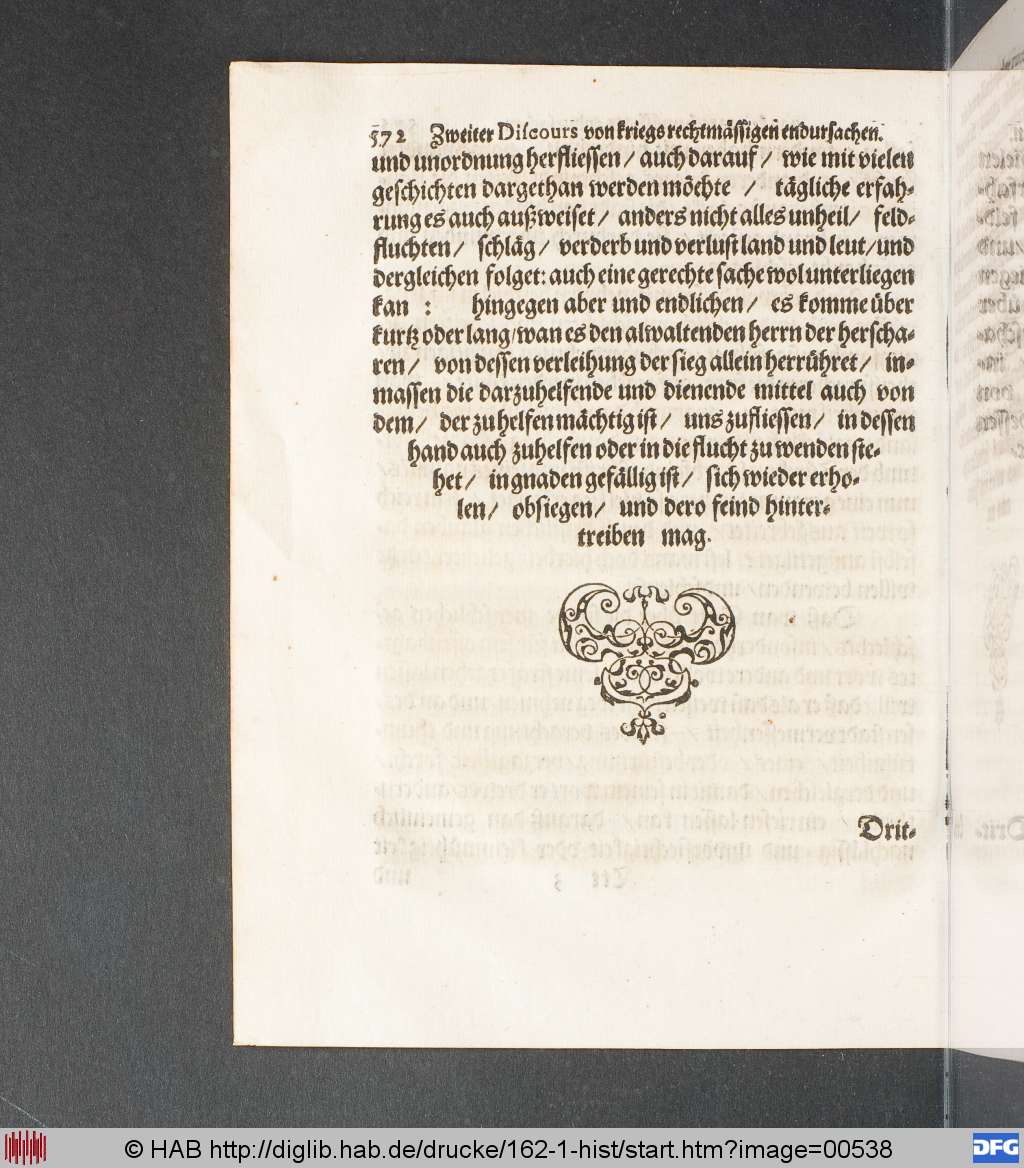 572 Zweiter Discours von kriegs rechtmässigen endursachen.
und unordnung herfliessen / auch darauf / wie mit vielen
geschichten dargethan werden möchte / tägliche erfah-
rung es auch außweiset / anders nicht alles unheil / feld-
fluchten / schläg / verderb und verlust land und leut / und
dergleichen folget: auch eine gerechte sache wol unterliegen
kan : hingegen aber und endlichen / es komme über
kurtz oder lang / wan es den alwaltenden herrn der herscha-
ren / von dessen verleihung der sieg allein herrühret / in-
massen die darzuhelfende und dienende mittel auch von
dem / der zu helfen mächtig ist / uns zufliessen / in dessen
hand auch zuhelfen oder in die flucht zu wenden ste-
het / in gnaden gefällig ist / sich wieder erho-
len / obsiegen / und dero feind hinter-
treiben mag.
Drit-
© HAB http://diglib.hab.de/drucke/162-1-hist/start.htm?image=00538
DFG